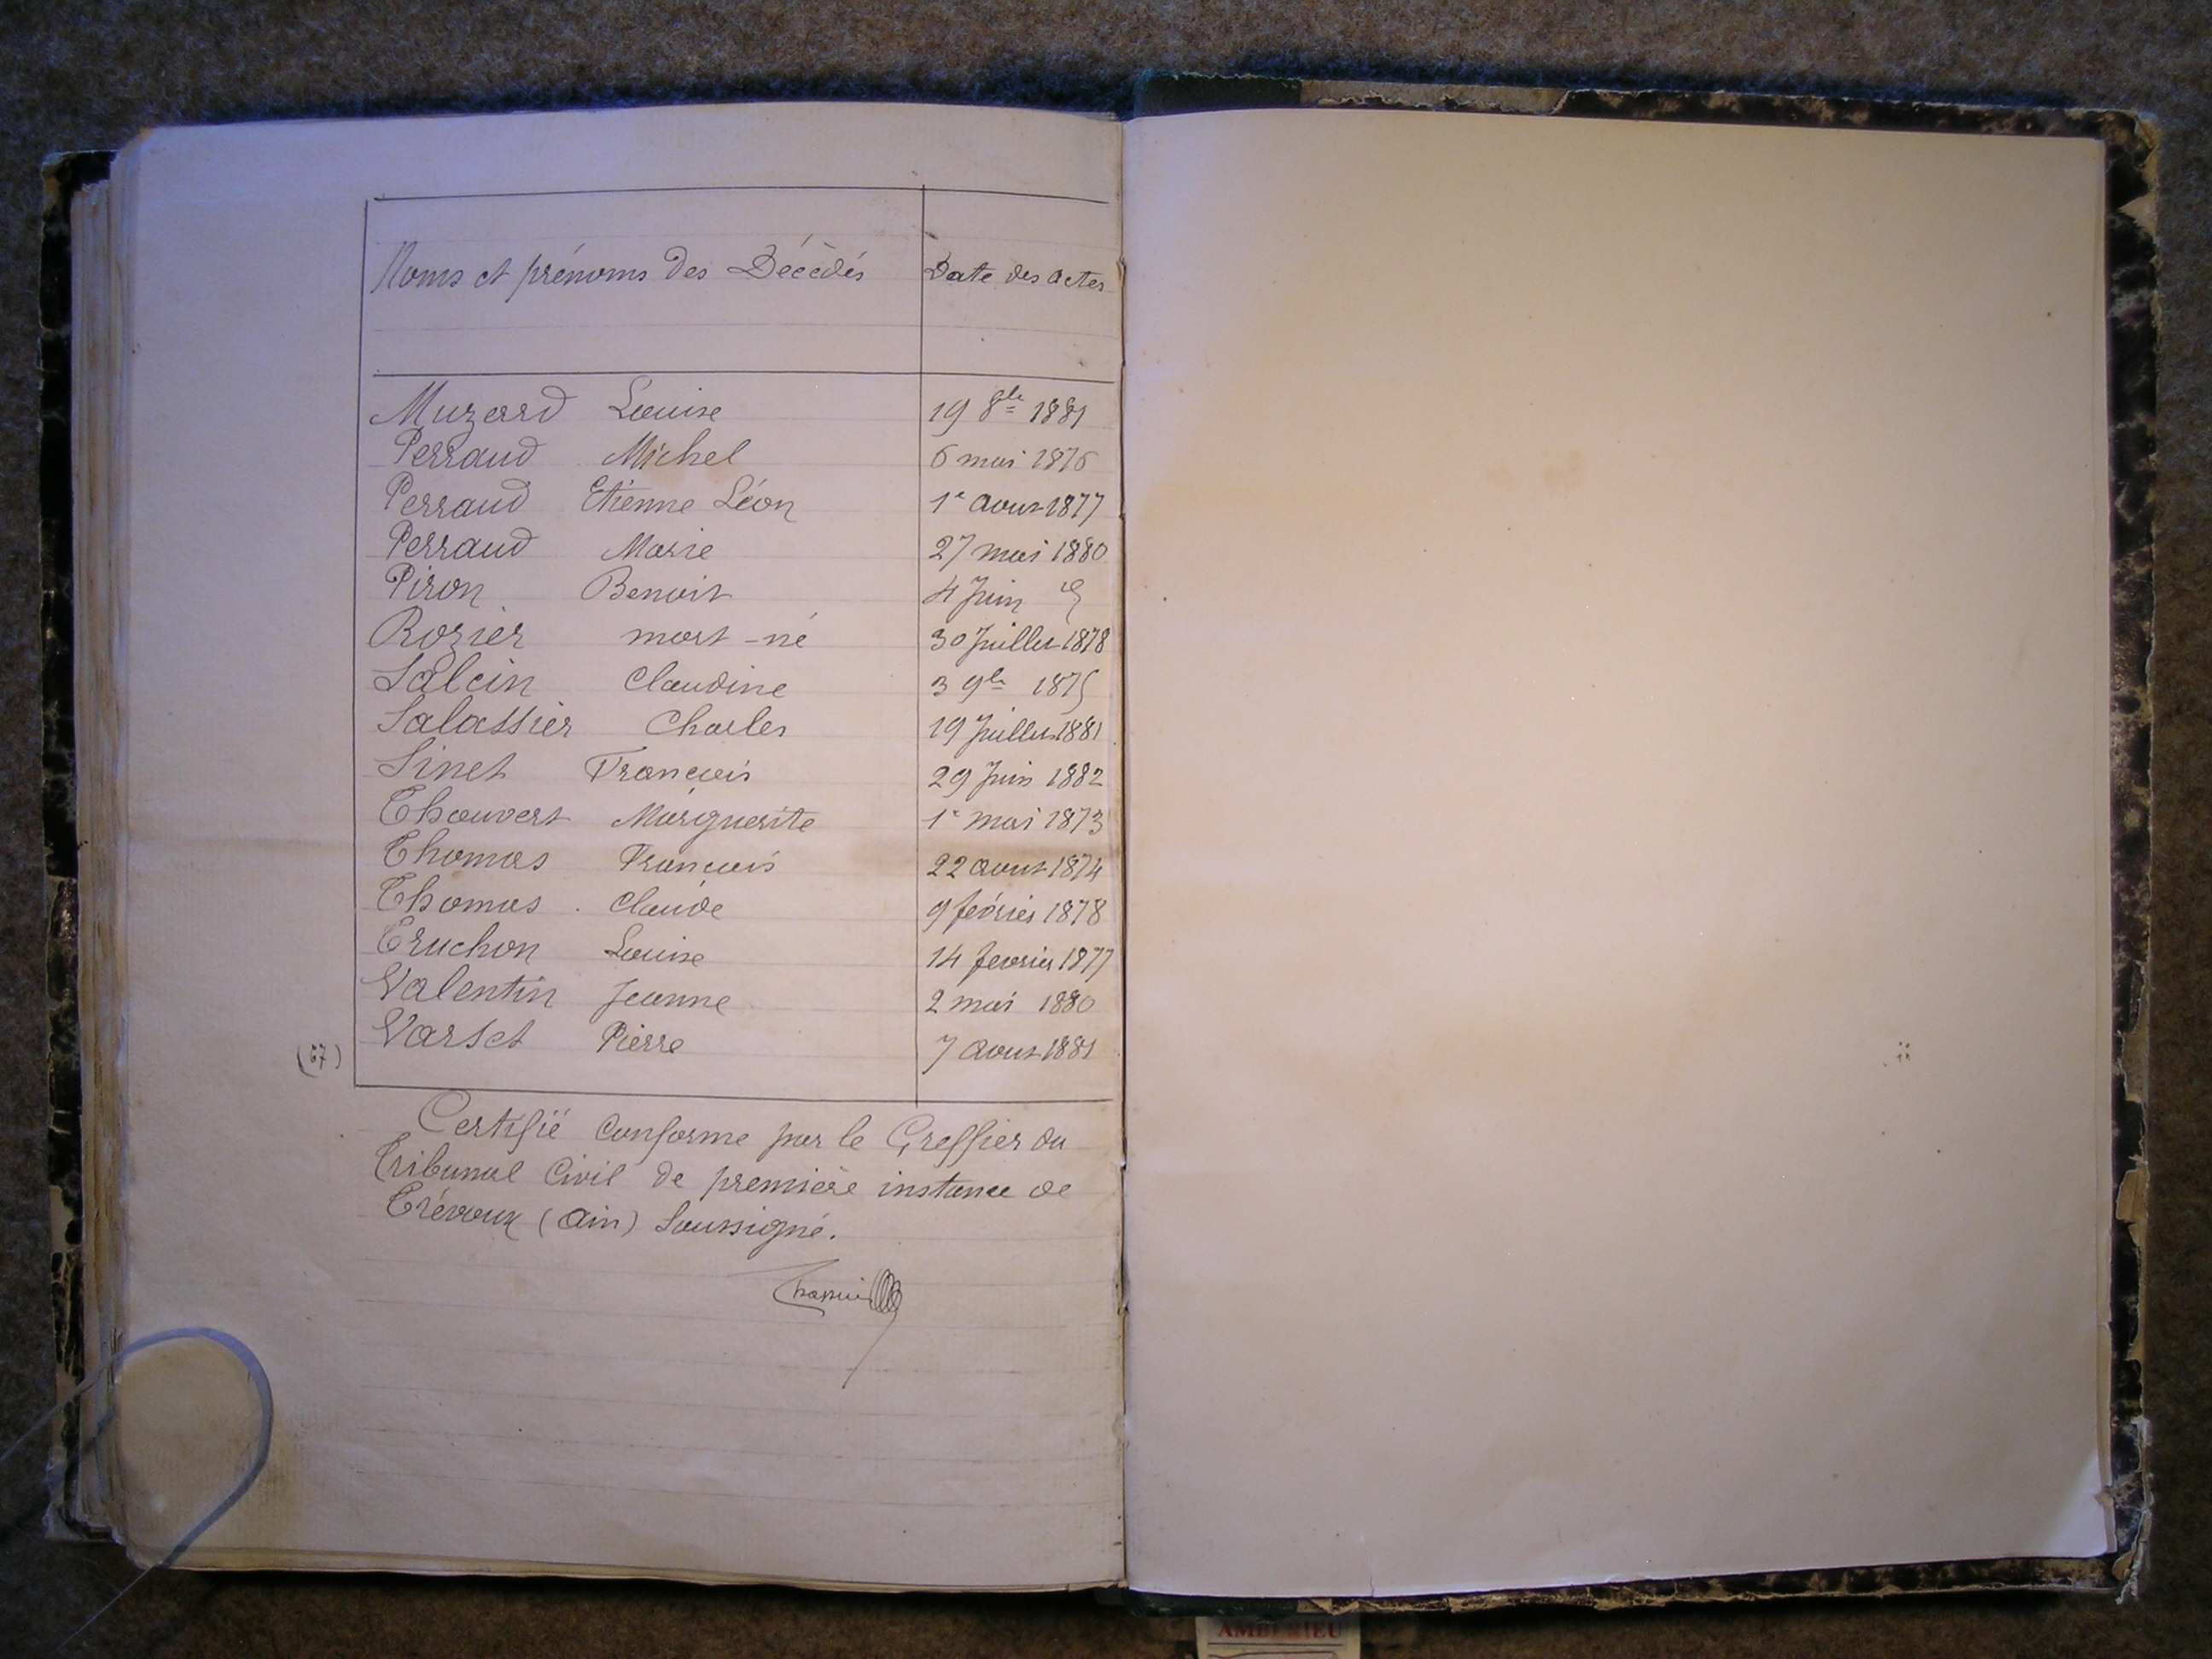 Noms et prénoms des Décédés Date des actes
Muzard Louise 19 8bre 1881
Perraud Michel 6 mai 1876
Perraud Etienne Léon 1er Aout 1877
Perraud Marie 27 mai 1880
Piron Benoit 4 Juin
Rozier mort-né 30 Juillet 1878
Salcin Claudine 3 9bre 1875
Salassier Charles 19 Juillet 1881
Sinet François 29 Juin 1882
Thouvert Marguerite 1er mai 1873
Thomas François 22 aout 1874
Thomas Claude 9 février 1878
Truchon Louise 14 fevrier 1877
Valentin Jeanne 2 mai 1880
Varset Pierre 7 Aout 1881
(67)
Certifié Conforme par le Greffier du
Tribunal Civil de première instance de
Trévoux (Ain) Soussigné.
AMBERIEU